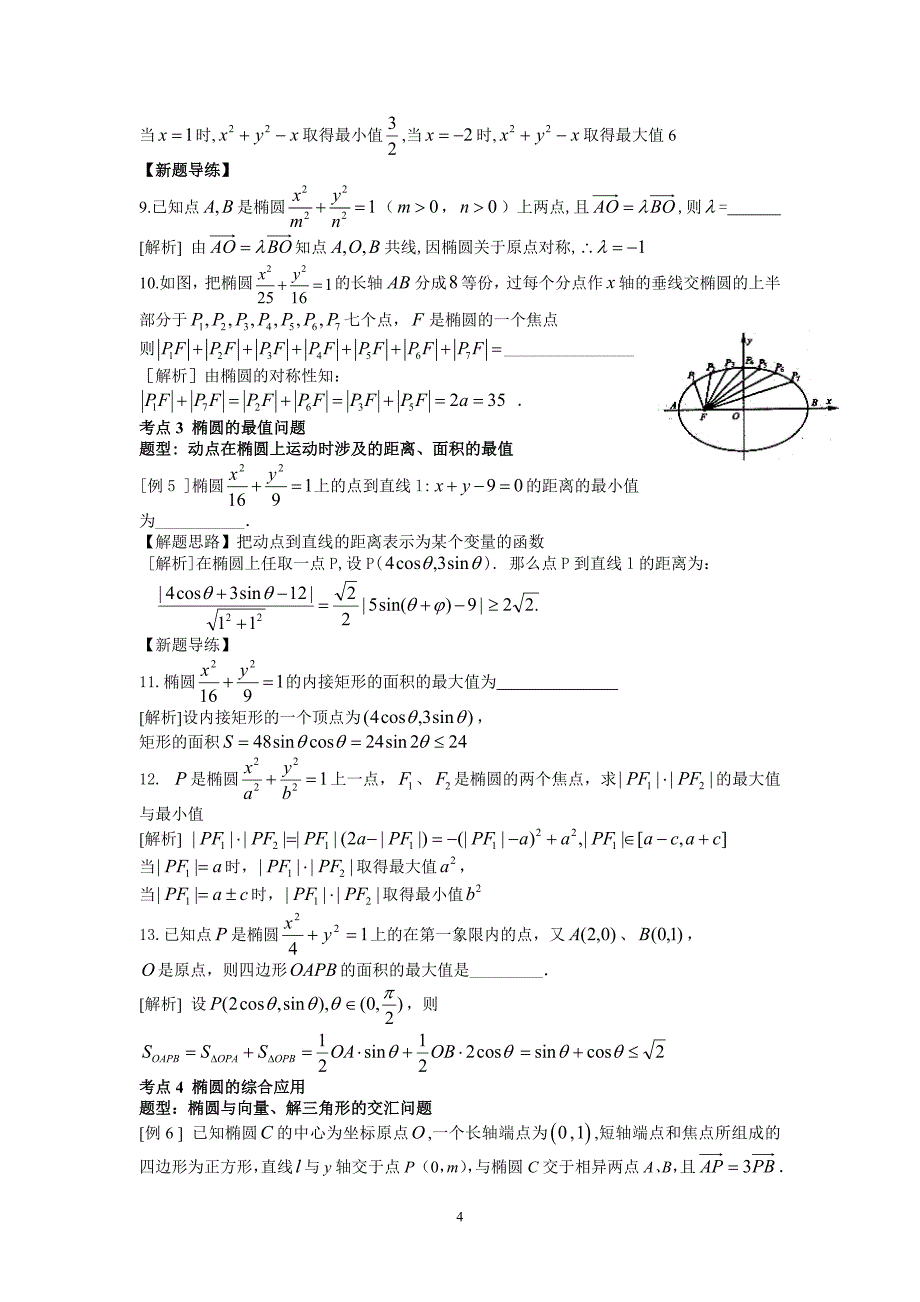 当 x = 1 时, x² + y² − x 取得最小值 3/2 ,当 x = −2 时, x² + y² − x 取得最大值 6
【新题导练】
9.已知点 A, B 是椭圆 x²/m² + y²/n² = 1（ m > 0 ， n > 0 ）上两点,且 \overrightarrow{AO} = λ\overrightarrow{BO} ,则 λ =______
[解析] 由 \overrightarrow{AO} = λ\overrightarrow{BO} 知点 A, O, B 共线,因椭圆关于原点对称, ∴ λ = −1
10.如图，把椭圆 x²/25 + y²/16 = 1 的长轴 AB 分成 8 等份，过每个分点作 x 轴的垂线交椭圆的上半
部分于 P₁, P₂, P₃, P₄, P₅, P₆, P₇ 七个点， F 是椭圆的一个焦点
则 |P₁F| + |P₂F| + |P₃F| + |P₄F| + |P₅F| + |P₆F| + |P₇F| = ________________
［解析］由椭圆的对称性知：
|P₁F| + |P₇F| = |P₂F| + |P₆F| = |P₃F| + |P₅F| = 2a = 35 ．
y
P₁ P₂ P₃ P₄ P₅ P₆ P₇
A F O B x
考点 3 椭圆的最值问题
题型：动点在椭圆上运动时涉及的距离、面积的最值
[例 5 ]椭圆 x²/16 + y²/9 = 1 上的点到直线 l: x + y − 9 = 0 的距离的最小值
为___________．
【解题思路】把动点到直线的距离表示为某个变量的函数
[解析]在椭圆上任取一点 P,设 P( 4cosθ,3sinθ ). 那么点 P 到直线 l 的距离为：
| 4cosθ + 3sinθ − 12 | / √(1² + 1²) = (√2/2) | 5sin(θ + φ) − 9 | ≥ 2√2.
【新题导练】
11.椭圆 x²/16 + y²/9 = 1 的内接矩形的面积的最大值为______________
[解析]设内接矩形的一个顶点为 (4cosθ,3sinθ) ，
矩形的面积 S = 48sinθcosθ = 24sin2θ ≤ 24
12. P 是椭圆 x²/a² + y²/b² = 1 上一点， F₁ 、 F₂ 是椭圆的两个焦点，求 | PF₁ | · | PF₂ | 的最大值
与最小值
[解析] | PF₁ | · | PF₂ |=| PF₁ | (2a− | PF₁ |) = −(| PF₁ | −a)² + a²,| PF₁ |∈[a − c, a + c]
当 | PF₁ |= a 时，| PF₁ | · | PF₂ | 取得最大值 a²，
当 | PF₁ |= a ± c 时，| PF₁ | · | PF₂ | 取得最小值 b²
13.已知点 P 是椭圆 x²/4 + y² = 1 上的在第一象限内的点，又 A(2,0) 、 B(0,1) ，
O 是原点，则四边形 OAPB 的面积的最大值是_________．
[解析] 设 P(2cosθ,sinθ),θ ∈ (0, π/2) ，则
S_{OAPB} = S_{ΔOPA} + S_{ΔOPB} = 1/2 OA · sinθ + 1/2 OB · 2cosθ = sinθ + cosθ ≤ √2
考点 4 椭圆的综合应用
题型：椭圆与向量、解三角形的交汇问题
[例 6 ] 已知椭圆 C 的中心为坐标原点 O ,一个长轴端点为 (0,1) ,短轴端点和焦点所组成的
四边形为正方形，直线 l 与 y 轴交于点 P（0，m），与椭圆 C 交于相异两点 A、B，且 \overrightarrow{AP} = 3\overrightarrow{PB}．
4